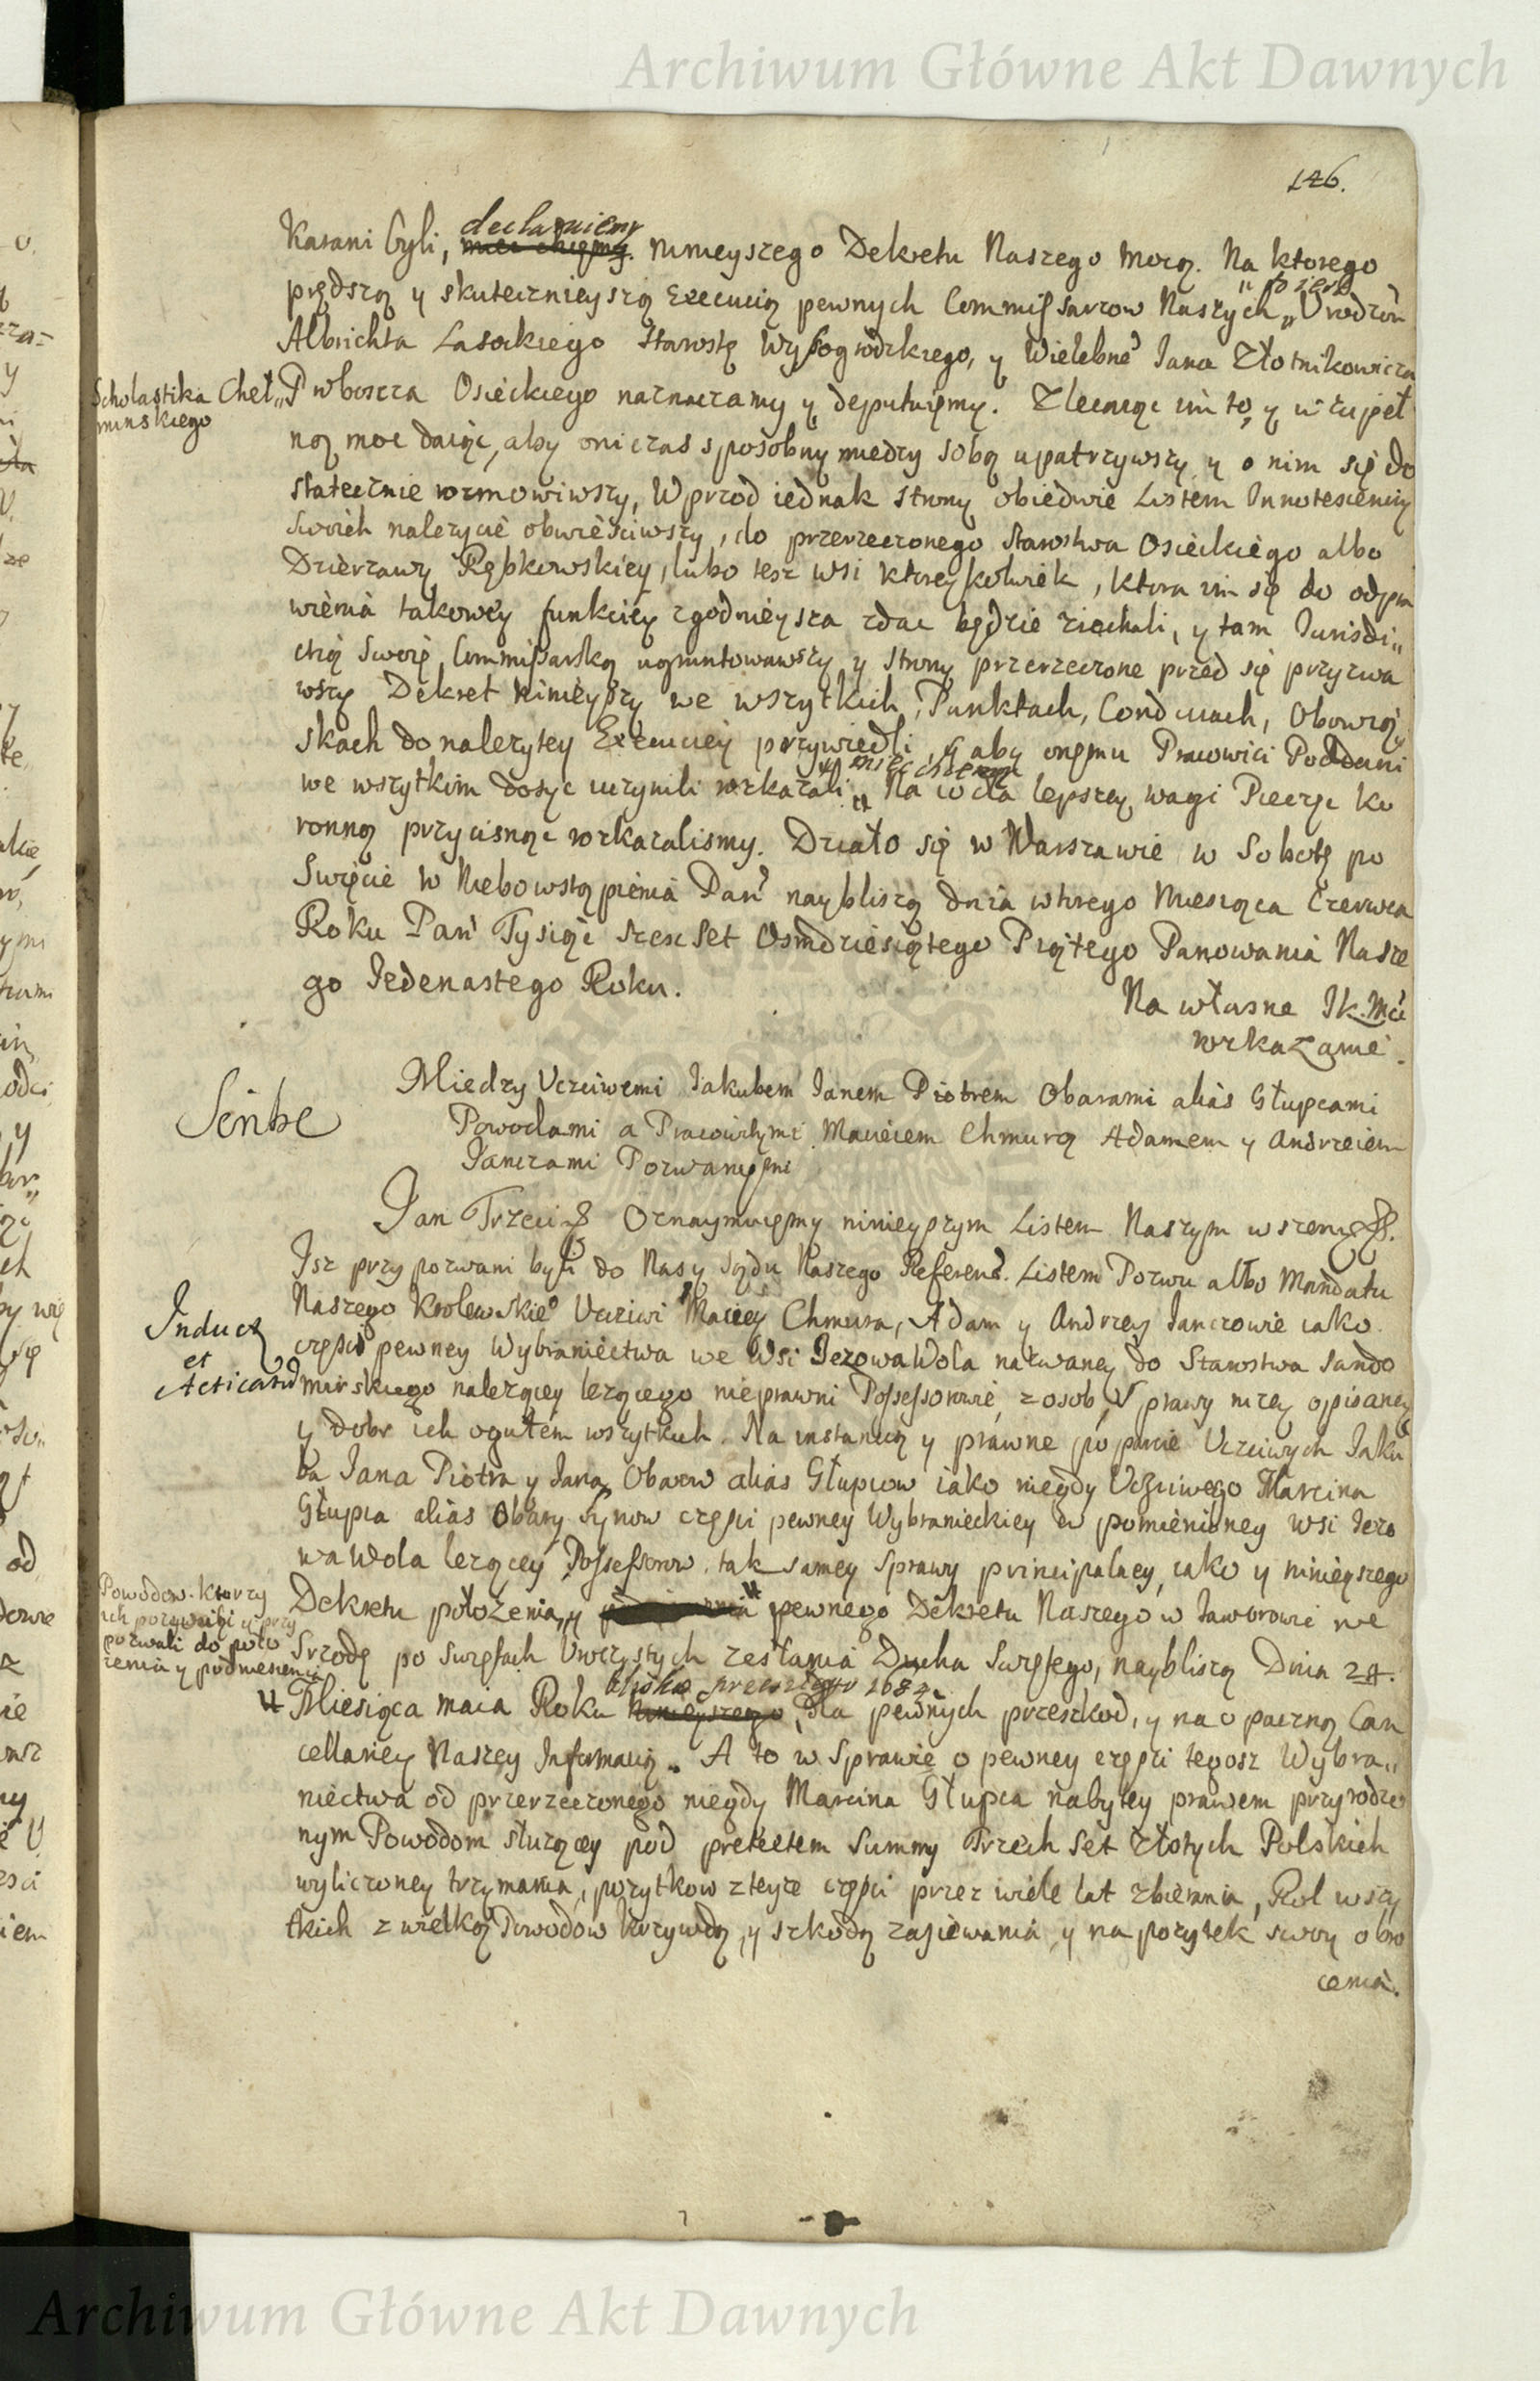 Archiwum Główne Akt Dawnych
146.
karani byli, declaruiemy ninieyszego Dekretu Naszego mocą. Na ktorego
prędszą y skutecznieyszą Execucią pewnych Commissarzow Naszych Urodzon
Albrichta Lasockiego Starostę Wyszogrodzkiego, y Wielebne Jana Złotnikowicza
Scholastika Cheł„
minskiego
Proboszcza Osieckiego naznaczamy y deputuiemy. Zlecaiąc im to, y w zupeł
ną moc daiąc, aby oni czas sposobny miedzy sobą upatrzywszy y o nim się do
statecznie rozmowiwszy, Wprzod iednak strony obiedwie Listem Innotescencyi
swoich należycie obwieściwszy, do przerzeczonego Starostwa Osieckiego albo
Dzierzawy Rębkowskiey, lubo tesz wsi ktoreykolwiek, ktora im się do odpra
wienia takowey funkciey zgodnieysza zdac będzie ziechali, y tam Jurisdi„
ctią swoię Commissarską ugruntowawszy y strony przerzeczone przed się przyzwa
wszy Dekret ninieyszy we wszytkich Punktach, Conditiach, Obowią
skach do nalezytey Execuciey przywiedli, y aby onemu Pracowici Poddani
we wszytkim dosyc uczynili wskazali. miec chcemy Na co dla lepszey wagi Pieczęc Ko
ronną przycisnąc roskazalismy. Działo się w Warszawie w Sobotę po
Swięcie W Niebowstąpienia Pań naybliszą dnia wtorego Miesiąca Czerwca
Roku Pań Tysiąc szesc set Osmdziesiątego Piątego Panowania Nasze
go Jedenastego Roku.
Na własne Jk.Mci
wskazanie.
Scribe
Miedzy Ucziwemi Jakubem Janem Piotrem Obarami alias Głupcami
Powodami a Pracowitymi Maciciem Chmurą Adamem y Andrzeiem
Janczami Pozwanymi
Jan Trzeci Oznaymuiemy ninieyszym Listem Naszym wszem
Isz przypozwani byli do Nas y Sądu Naszego Referend. Listem Pozwu albo Mandatu
Naszego Krolewskie Ucziwi Maciey Chmura, Adam y Andrzey Janczowie iako
Induct
et
Acticatio
częsci pewney Wybraniectwa we Wsi Jezowa Wola nazwaney do Starostwa Sando
mirskiego nalezącey lezącego nieprawni Possessorowie, z osob, sprawy nizey opisaney
y dobr ich ogułem wszytkich. Na instancią y prawne poparcie Ucziwych Jaku
ba Jana Piotra y Jana Obarow alias Głupcow iako niegdy Ucziwego Marcina
Głupca alias Obary Synow częsci pewney Wybranieckiey w pomienioney wsi Jezo
wa Wola lezącey Possessorow. tak samey Sprawy principalney, iako y ninieyszego
Powodow. ktorzy
ich pozywali y przy
pozwali do poło
zenia y podniesienia
Dekretu położenia, y pewnego Dekretu Naszego w Jaworowie we
Srzodę po Swiętach Uroczystych zesłania Ducha Swiętego, naybliszą Dnia 24.
Miesiąca maia Roku blisko przeszłego 1684. dla pewnych przeszkod, y na opaczną Can
cellariey Naszey Informacią. A to w Sprawie o pewney części tegosz Wybra„
niectwa od przerzeczonego niegdy Marcina Głupca nabytey prawem przyrodzo
nym Powodom służącey pod pretextem Summy Trzech set Złotych Polskich
wyliczoney trzymania, pozytkow z teyze części przez wiele lat zbierania, Rol wszy
tkich z wielką Powodow krzywdą, y szkodą zasiewania, y na pozytek swoy obro
cenia.
Archiwum Główne Akt Dawnych